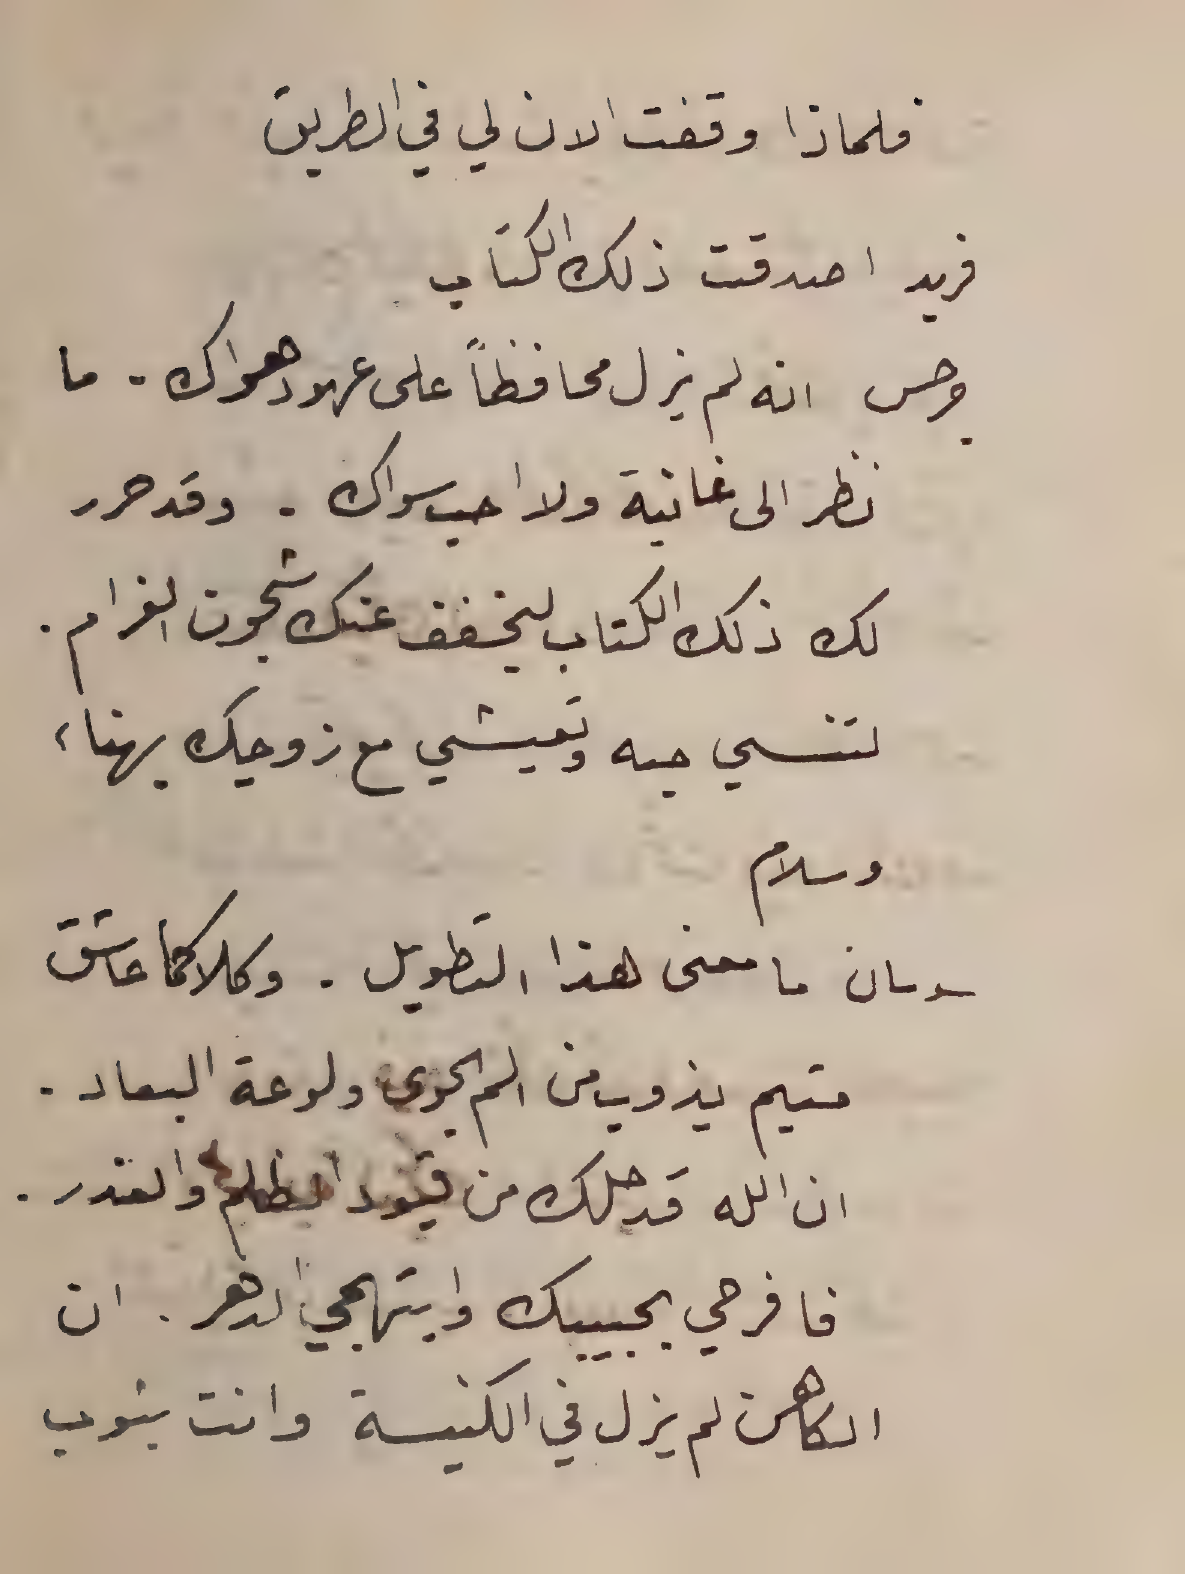 فلماذا وقفت الان لي في الطريق
فريد اصدقت ذلك الكتاب
جرجس انه لم يزل محافظاً على عهود هواك . ما
نظر الى غانية ولا احب سواك . وقد حرر
لك ذلك الكتاب ليخفف عنك شجون الغرام .
لتنسي حبه وتعيشي مع زوجك بهناء
وسلام
سوسان ما معنى هذا التطويل . وكلاكما عاشق
متيم يذوب من الم الجوى ولوعة البعاد .
ان الله قد حلك من قيود الظلم والغدر .
فافرحي بحبيبك وابتهجي الدهر . ان
الكاهن لم يزل في الكنيسة وانت بثوب